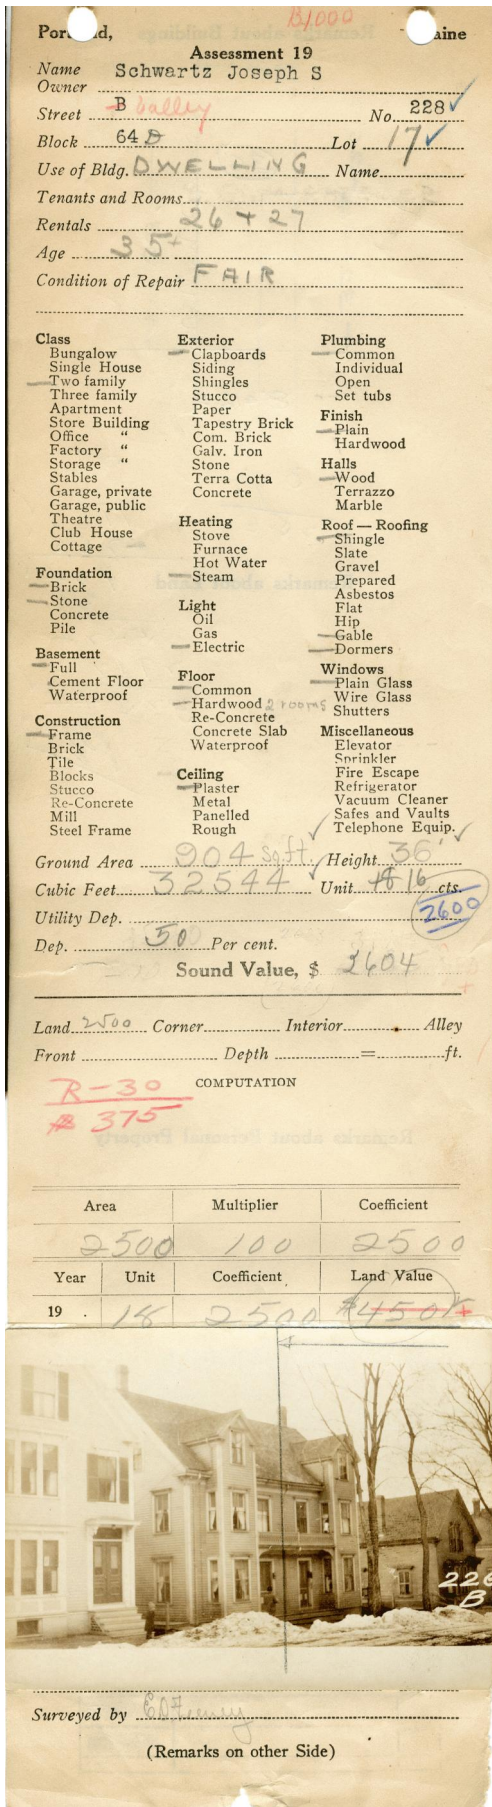 B/1000
Portland, Maine
Assessment 19
Name Schwartz Joseph S
Owner
Street B Valley No. 228 ✓
Block 64 D Lot 17 ✓
Use of Bldg. DWELLING Name
Tenants and Rooms
Rentals 26 + 27
Age 35+
Condition of Repair FAIR
Class
Bungalow
Single House
Two family
Three family
Apartment
Store Building
Office "
Factory "
Storage "
Stables
Garage, private
Garage, public
Theatre
Club House
Cottage
Foundation
Brick
Stone
Concrete
Pile
Basement
Full
Cement Floor
Waterproof
Construction
Frame
Brick
Tile
Blocks
Stucco
Re-Concrete
Mill
Steel Frame
Exterior
Clapboards
Siding
Shingles
Stucco
Paper
Tapestry Brick
Com. Brick
Galv. Iron
Stone
Terra Cotta
Concrete
Heating
Stove
Furnace
Hot Water
Steam
Light
Oil
Gas
Electric
Floor
Common
Hardwood 2 rooms
Re-Concrete
Concrete Slab
Waterproof
Ceiling
Plaster
Metal
Panelled
Rough
Plumbing
Common
Individual
Open
Set tubs
Finish
Plain
Hardwood
Halls
Wood
Terrazzo
Marble
Roof — Roofing
Shingle
Slate
Gravel
Prepared
Asbestos
Flat
Hip
Gable
Dormers
Windows
Plain Glass
Wire Glass
Shutters
Miscellaneous
Elevator
Sprinkler
Fire Escape
Refrigerator
Vacuum Cleaner
Safes and Vaults
Telephone Equip.
Ground Area 904 sq. ft. ✓ Height 36' ✓
Cubic Feet 32544 ✓ Unit 18 16 cts.
Utility Dep. 2600
Dep. 50 Per cent.
Sound Value, $ 2604
Land 2500 Corner Interior Alley
Front Depth = ft.
COMPUTATION
R-30
B 375
Area Multiplier Coefficient
2500 100 2500
Year Unit Coefficient Land Value
19 . 18 2500 $450 +
228
B
Surveyed by E D Feeney
(Remarks on other Side)